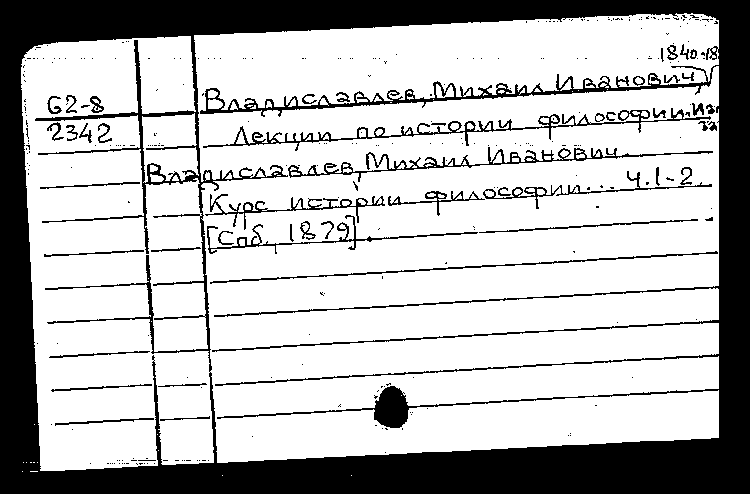 1840-18
Г2-8 Владиславлев, Михаил Иванович,
2342 Лекции по истории философии.
Владиславлев, Михаил Иванович.
Курс истории философии... Ч.1-2.
[Спб., 1879].